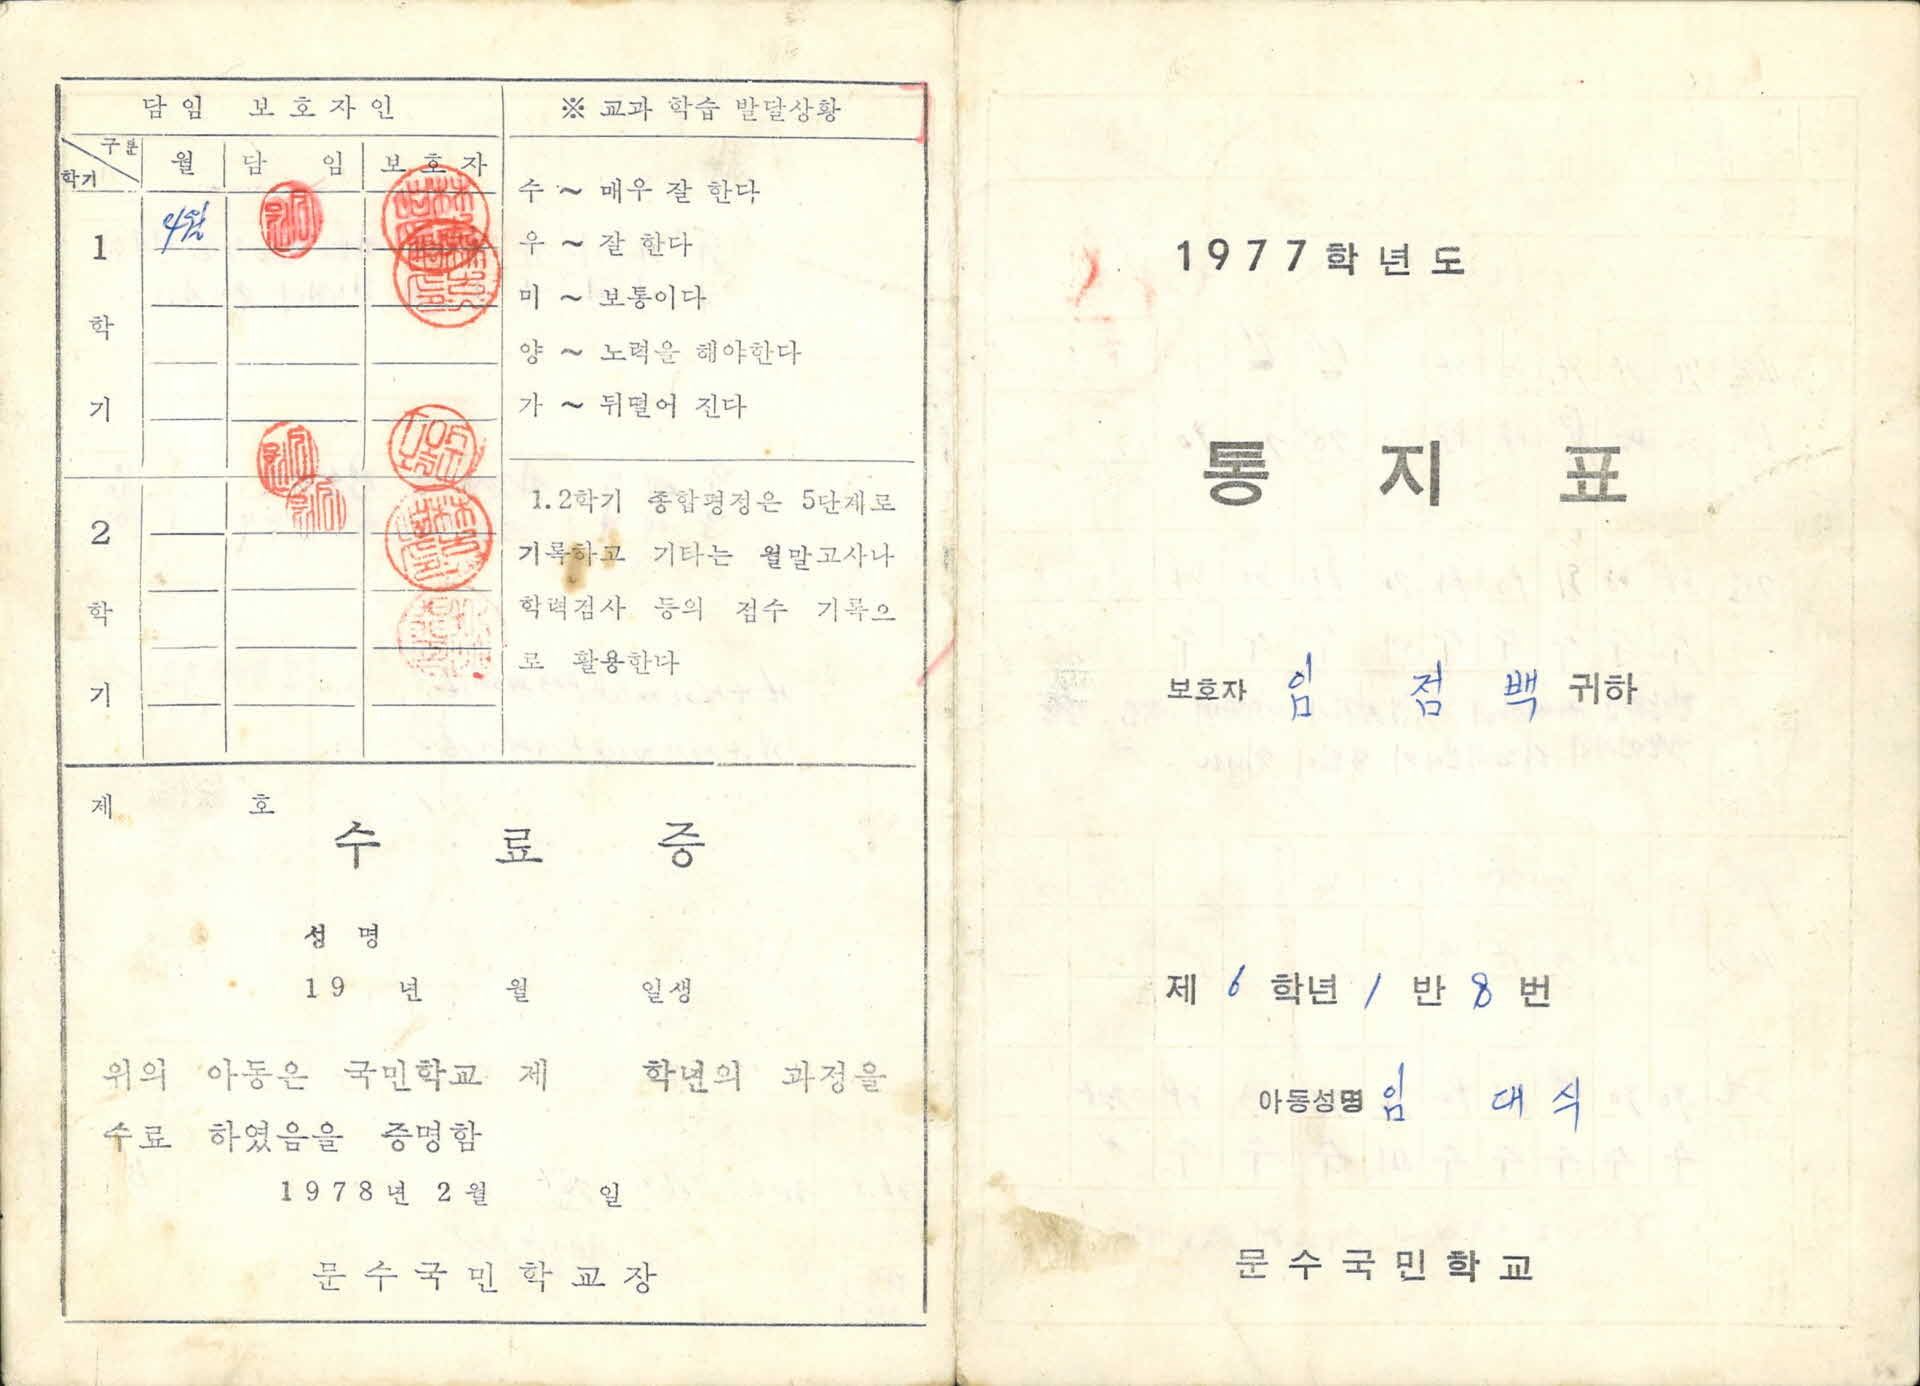 담임 보호자인
구분
학기
월
담 임
보호자
1
학
기
4월
2
학
기
※ 교과 학습 발달상황
수 ~ 매우 잘 한다
우 ~ 잘 한다
미 ~ 보통이다
양 ~ 노력을 해야한다
가 ~ 뒤떨어 진다
1.2학기 종합평정은 5단계로
기록하고 기타는 월말고사나
학력검사 등의 점수 기록으
로 활용한다
제 호
수 료 증
성 명
19 년 월 일생
위의 아동은 국민학교 제 학년의 과정을
수료 하였음을 증명함
1978년 2월 일
문수국민학교장
1977학년도
통 지 표
보호자 임 점 백 귀하
제 6 학년 1 반 8 번
아동성명 임 대 식
문수국민학교